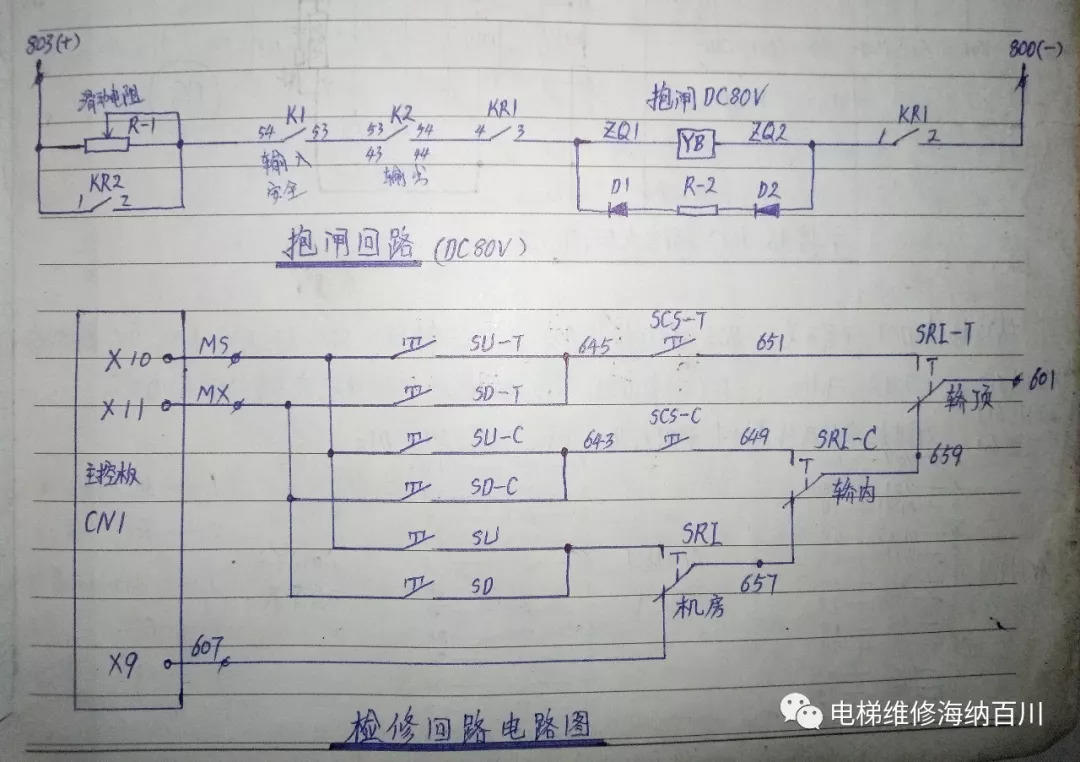 803(+)
800(-)
滑动电阻
R-1
K1
54 53
输入
安全
K2
53 54
43 44
输出
KR1
4 3
抱闸DC80V
ZQ1 YB ZQ2
D1 R-2 D2
KR1
1 2
KR2
1 2
抱闸回路(DC80V)
X10 MS SU-T 645 SCS-T 651 SRI-T
X11 MX SD-T 轿顶 601
SU-C 643 SCS-C 649 SRI-C 659
主控板 SD-C 轿内
CN1
SU SRI
SD 机房 657
X9 607
检修回路电路图
电梯维修海纳百川